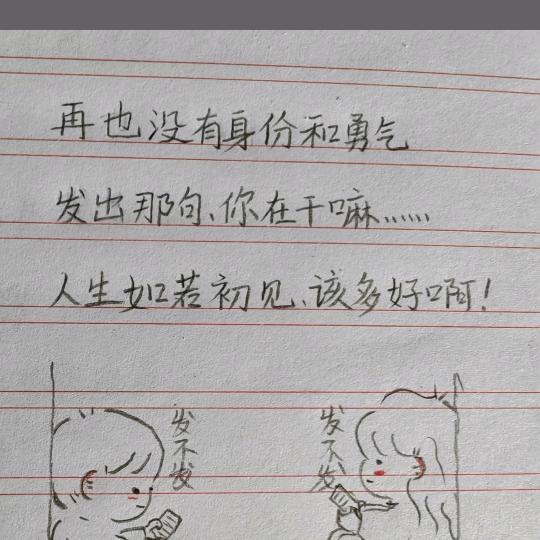 再也没有身份和勇气
发出那句、你在干嘛......
人生如若初见、该多好啊!
发不发
发不发